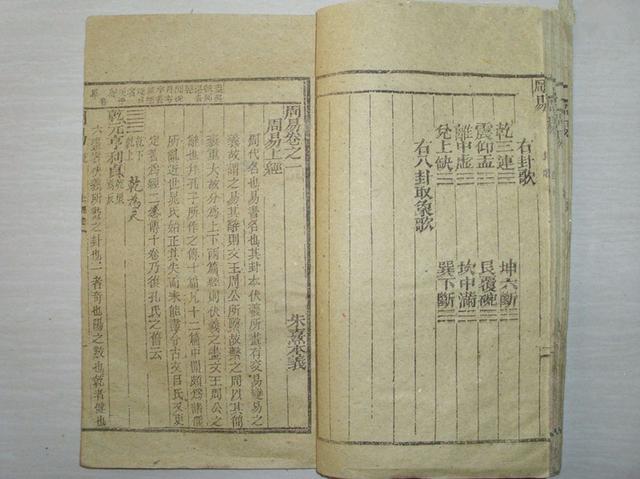 周易
右卦歌
乾三連☰ 坤六斷☷
震仰盂☳ 艮覆碗☶
離中虛☲ 坎中滿☵
兌上缺☱ 巽下斷☴
右八卦取象歌
周易卷之一
周易上經 朱熹本義
周代名也易書名也其卦本伏羲所畫有交易變易之
義故謂之易其辭則文王周公所繫故繫之周以其簡
袠重大故分爲上下兩篇經則伏羲之畫文王周公之
辭也并孔子所作之傳十篇凡十二篇中間頗爲諸儒
所亂近世晁氏始正其失而未能盡合古文呂氏又更
定著爲經二卷傳十卷乃復孔氏之舊云
乾下
乾上 乾爲天
乾元亨利貞
六畫者伏羲所畫之卦也一者奇也陽之數也乾者健也